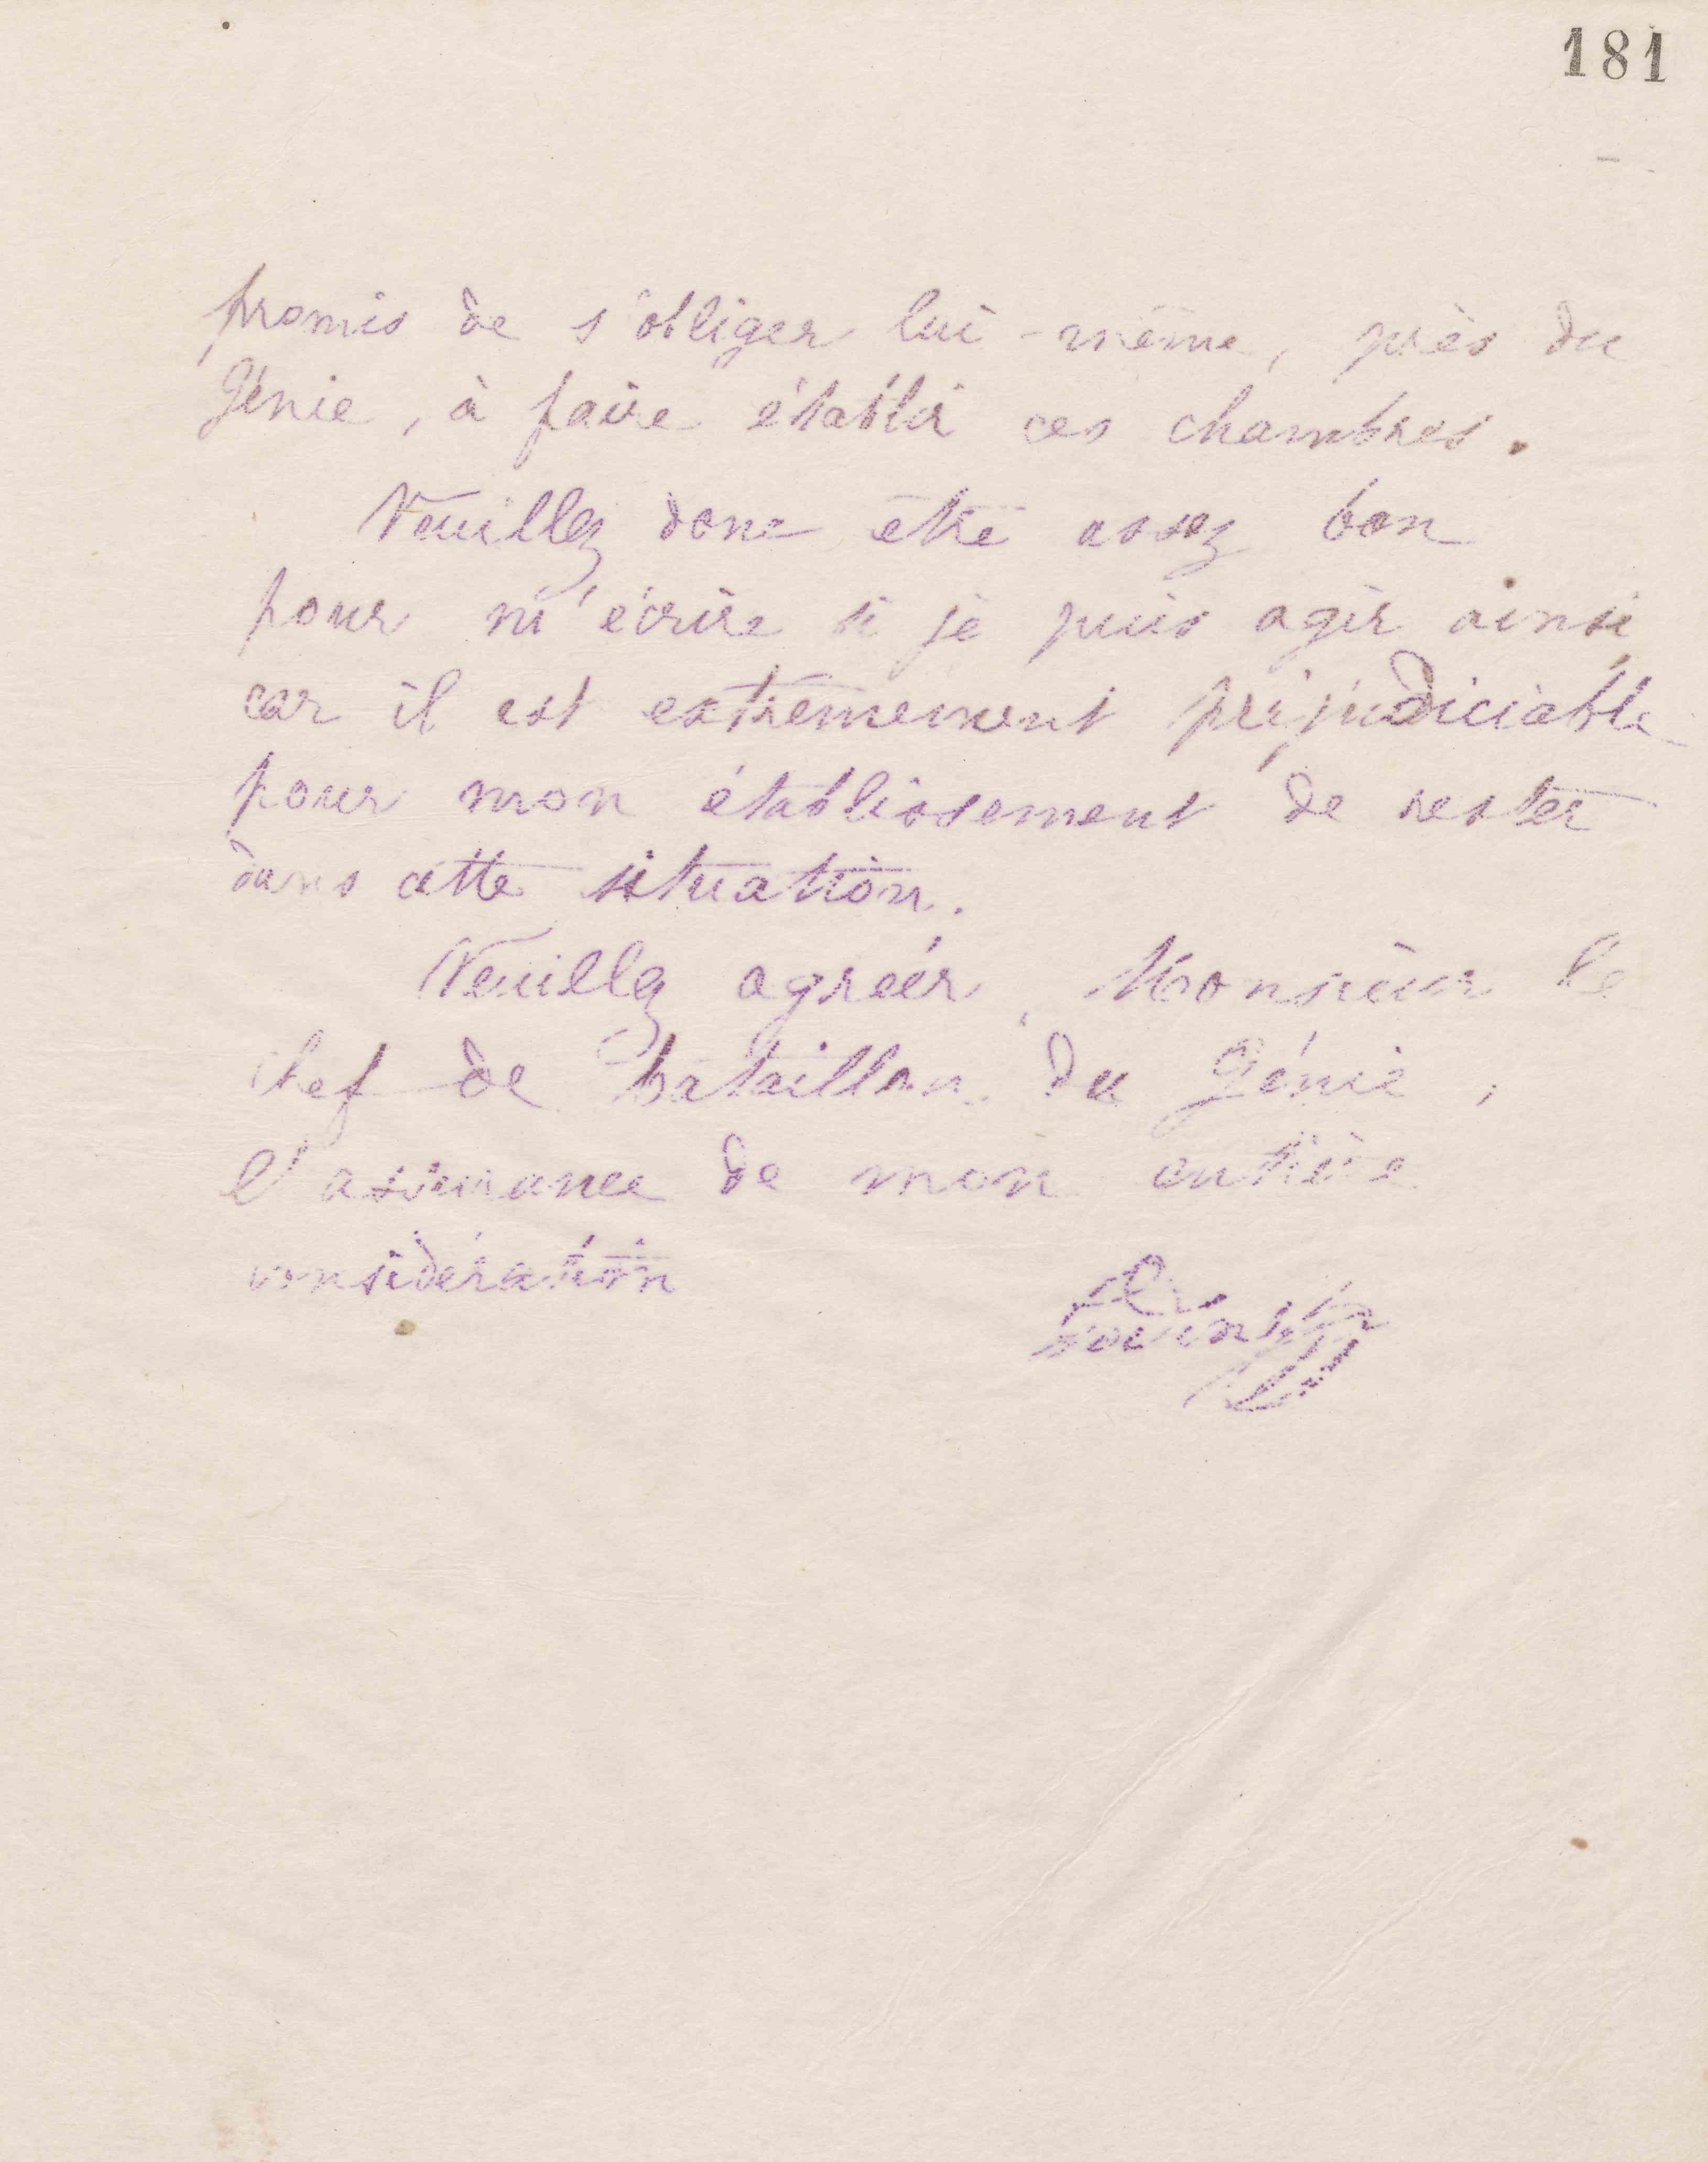 181
promis de s'obliger lui-même, près du
Génie, à faire établir ces chambres.
Veuillez donc être assez bon
pour m'écrire si je puis agir ainsi,
car il est extrêmement préjudiciable
pour mon établissement de rester
dans cette situation.
Veuillez agréer, Monsieur le
chef de bataillon du Génie,
l'assurance de mon entière
considération